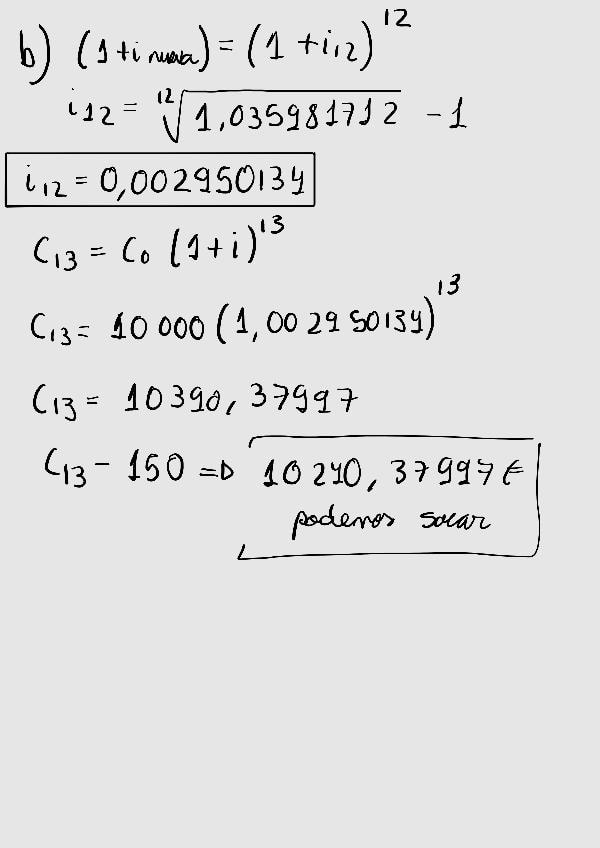 b) (1+i nueva) = (1+i₁₂)¹²
i₁₂ = ¹²√1,035981712 - 1
i₁₂ = 0,002950134
C₁₃ = C₀ (1+i)¹³
C₁₃ = 10 000 (1,002950134)¹³
C₁₃ = 10390,37997
C₁₃ - 150 => 10240,37997€
podemos sacar